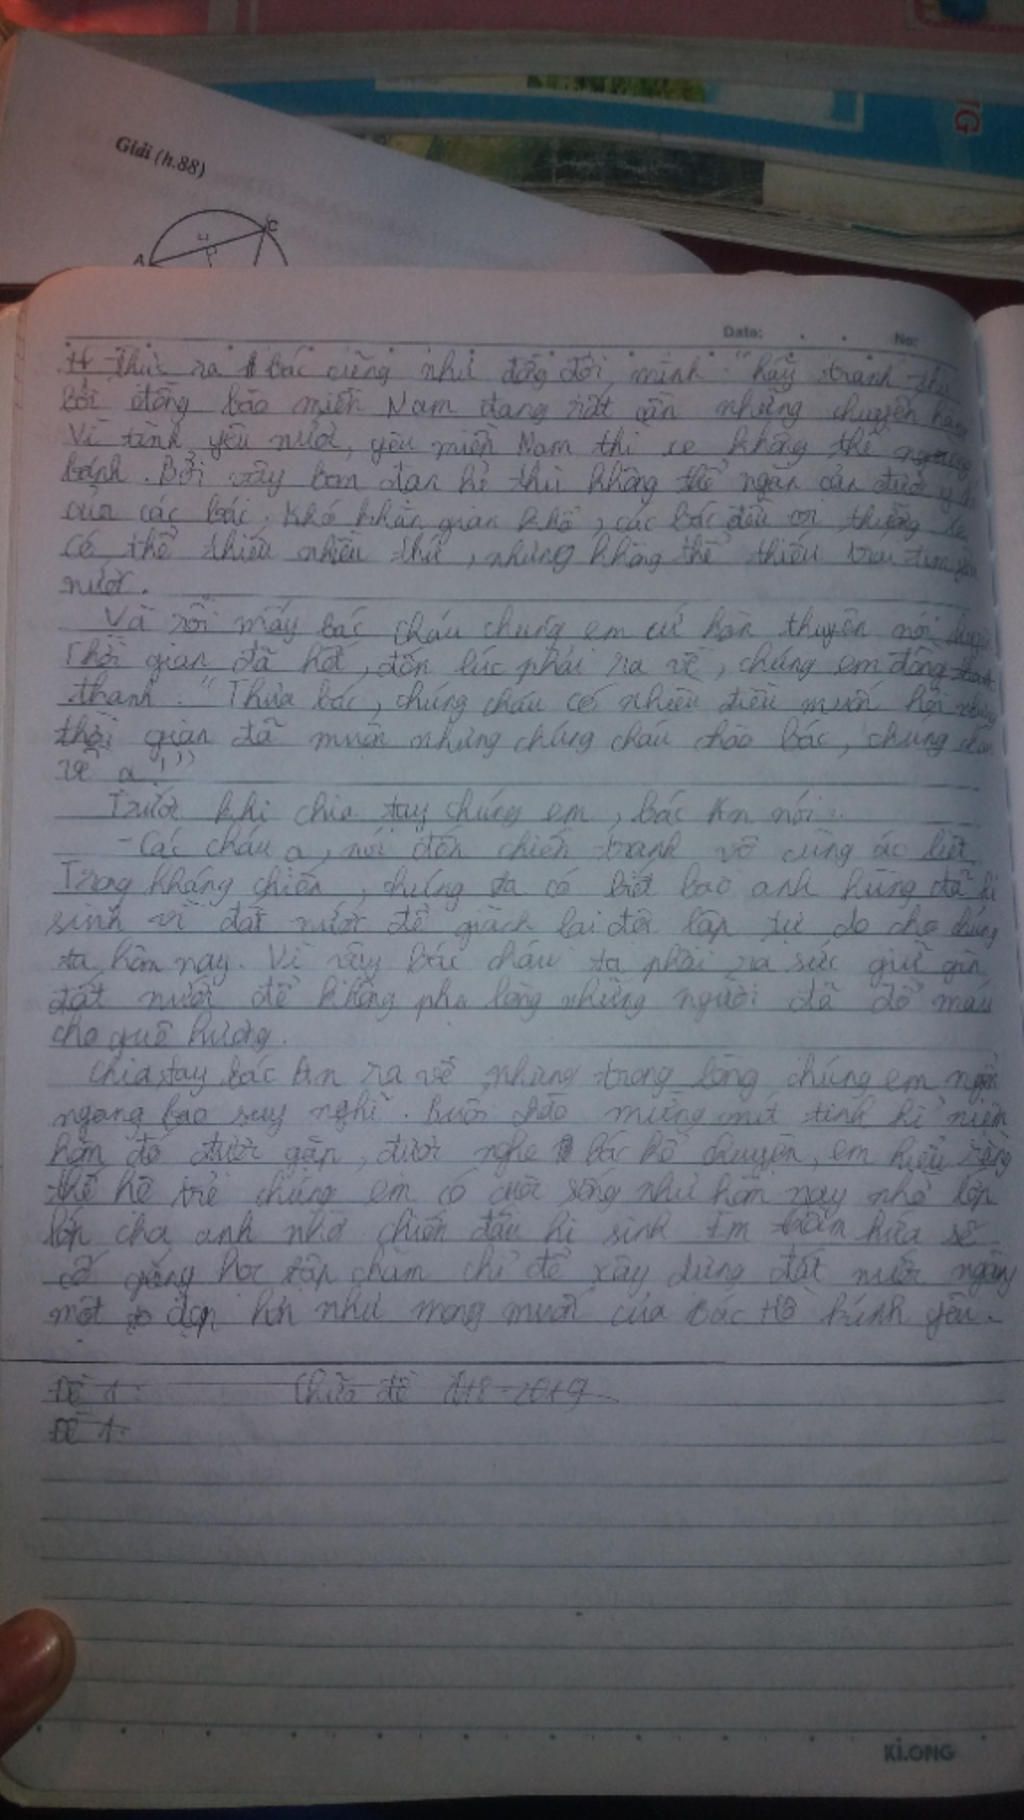 NG
Giải (h.88)
C
H
A
Date: No:
Thực ra bác cũng như đồng đội mình "hãy tranh thủ
Bởi đồng bào miền Nam đang rất cần những chuyến hàng
Vì tình yêu nước, yêu miền Nam thì xe không thể ngừng
bánh. Bởi vậy bom đạn kẻ thù không thể ngăn cản được ý
của các bác. Khó khăn gian khổ, các bác đều
có thể thiếu nhiều thứ, nhưng không thể thiếu trái tim yêu
nước.
Và rồi mấy bác cháu chúng em cứ hàn thuyên nói chuyện
Thời gian đã hết, đến lúc phải ra về, chúng em đồng
thanh: "Thưa bác, chúng cháu có nhiều điều muốn hỏi nhưng
thời gian đã muộn nhưng chúng cháu chào bác, chúng cháu
về ạ!"
Trước khi chia tay chúng em, bác An nói:
- Các cháu ạ, nói đến chiến tranh vô cùng ác liệt
Trong kháng chiến, chúng ta có biết bao anh hùng đã hi
sinh vì đất nước để giành lại độc lập tự do cho chúng
ta hôm nay. Vì vậy bác cháu ta phải ra sức giữ gìn
đất nước để không phụ lòng những người đã đổ máu
cho quê hương.
Chia tay bác An ra về nhưng trong lòng chúng em ngổn
ngang bao suy nghĩ. Buổi chào mừng mít tinh kỉ niệm
hôm đó được gặp, được nghe bác kể chuyện, em hiểu rằng
thế hệ trẻ chúng em có cuộc sống như hôm nay nhờ lớp
lớp cha anh nhờ chiến đấu hi sinh Em thầm hứa sẽ
cố gắng học tập chăm chỉ để xây dựng đất nước ngày
một đẹp hơn như mong muốn của Bác Hồ kính yêu.
Đề 1: Chữa đề 2018-2019
Đề 1:
KLONG